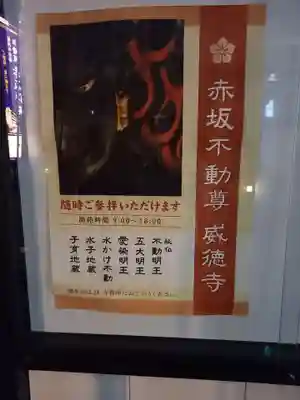 赤坂不動尊 威徳寺
随時ご参拝いただけます
開門時間 9:00~18:00
秘仏
不動明王
五大明王
愛染明王
水かけ不動
水子地蔵
子育地蔵